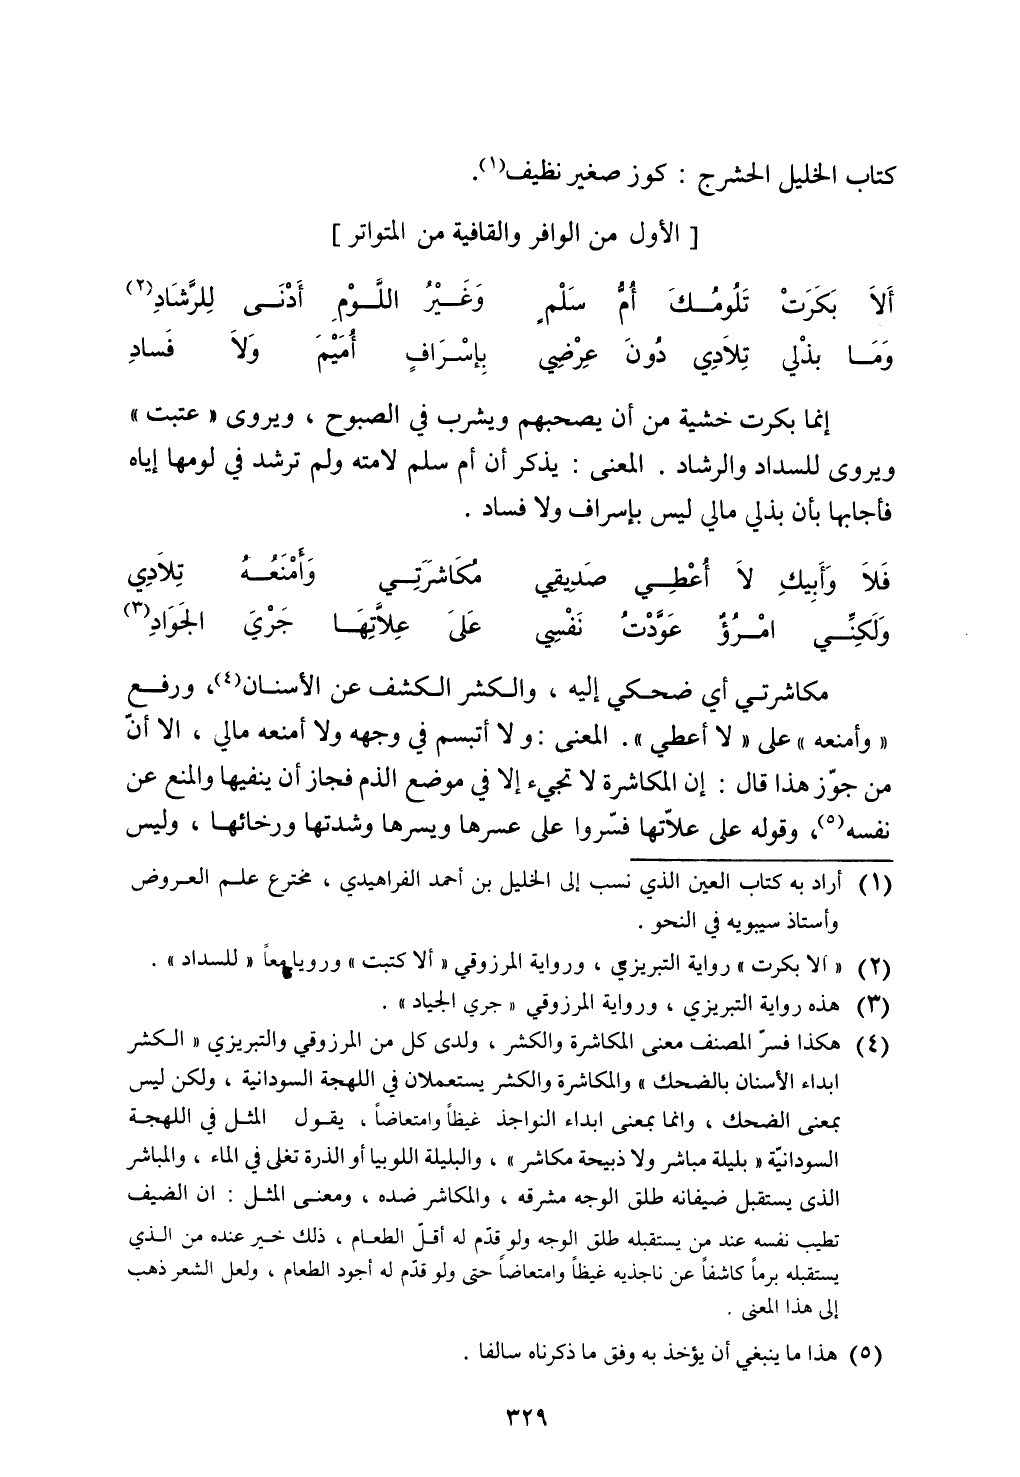 كتاب الخليل الحشرج : كوز صغير نظيف(١).
[ الأول من الوافر والقافية من المتواتر ]
أَلاَ بَكَرَتْ تَلُومُكَ أُمُّ سَلْمٍ وَغَيْرُ اللَّوْمِ أَدْنَى لِلرَّشَادِ(٢)
وَمَا بذْلي تِلاَدِي دُونَ عِرْضِي بِإسْرَافٍ أُمَيْمَ وَلاَ فَسادِ
إنما بكرت خشية من أن يصحبهم ويشرب في الصبوح ، ويروى « عتبت »
ويروى للسداد والرشاد . المعنى : يذكر أن أم سلم لامته ولم ترشد في لومها إياه
فأجابها بأن بذلي مالي ليس بإسراف ولا فساد .
فَلاَ وَأَبِيكِ لاَ أُعْطِي صَدِيقِي مُكَاشَرَتِي وَأَمْنَعُهُ تِلاَدِي
وَلَكِنِّي امْرُؤٌ عَوَّدْتُ نَفْسِي عَلَىَ عِلاَّتِهَا جَرْيَ الجَوَادِ(٣)
مكاشرتي أي ضحكي إليه ، والكشر الكشف عن الأسنان(٤)، ورفع
« وأمنعه » على « لا أعطي ». المعنى : و لا أتبسم في وجهه ولا أمنعه مالي ، الا أنّ
من جوّز هذا قال : إن المكاشرة لا تجيء إلا في موضع الذم فجاز أن ينفيها والمنع عن
نفسه(٥)، وقوله على علاّتها فسّروا على عسرها ويسرها وشدتها ورخائها ، وليس
(١) أراد به كتاب العين الذي نسب إلى الخليل بن أحمد الفراهيدي ، مخترع علم العروض
وأستاذ سيبويه في النحو .
(٢) « الا بكرت » رواية التبريزي ، ورواية المرزوقي « ألا كتبت » ورويا معاً « للسداد » .
(٣) هذه رواية التبريزي ، ورواية المرزوقي « جري الجياد » .
(٤) هكذا فسرّ المصنف معنى المكاشرة والكشر ، ولدى كل من المرزوقي والتبريزي « الكشر
ابداء الأسنان بالضحك » والمكاشرة والكشر يستعملان في اللهجة السودانية ، ولكن ليس
بمعنى الضحك ، وانما بمعنى ابداء النواجذ غيظاً وامتعاضاً ، يقول المثل في اللهجة
السودانيّة « بليلة مباشر ولا ذبيحة مكاشر » ، والبليلة اللوبيا أو الذرة تغلى في الماء ، والمباشر
الذى يستقبل ضيفانه طلق الوجه مشرقه ، والمكاشر ضده ، ومعنى المثل : ان الضيف
تطيب نفسه عند من يستقبله طلق الوجه ولو قدّم له أقلّ الطعام ، ذلك خير عنده من الذي
يستقبله برماً كاشفاً عن ناجذيه غيظاً وامتعاضاً حتى ولو قدّم له أجود الطعام ، ولعل الشعر ذهب
إلى هذا المعنى .
(٥) هذا ما ينبغي أن يؤخذ به وفق ما ذكرناه سالفا .
٣٢٩